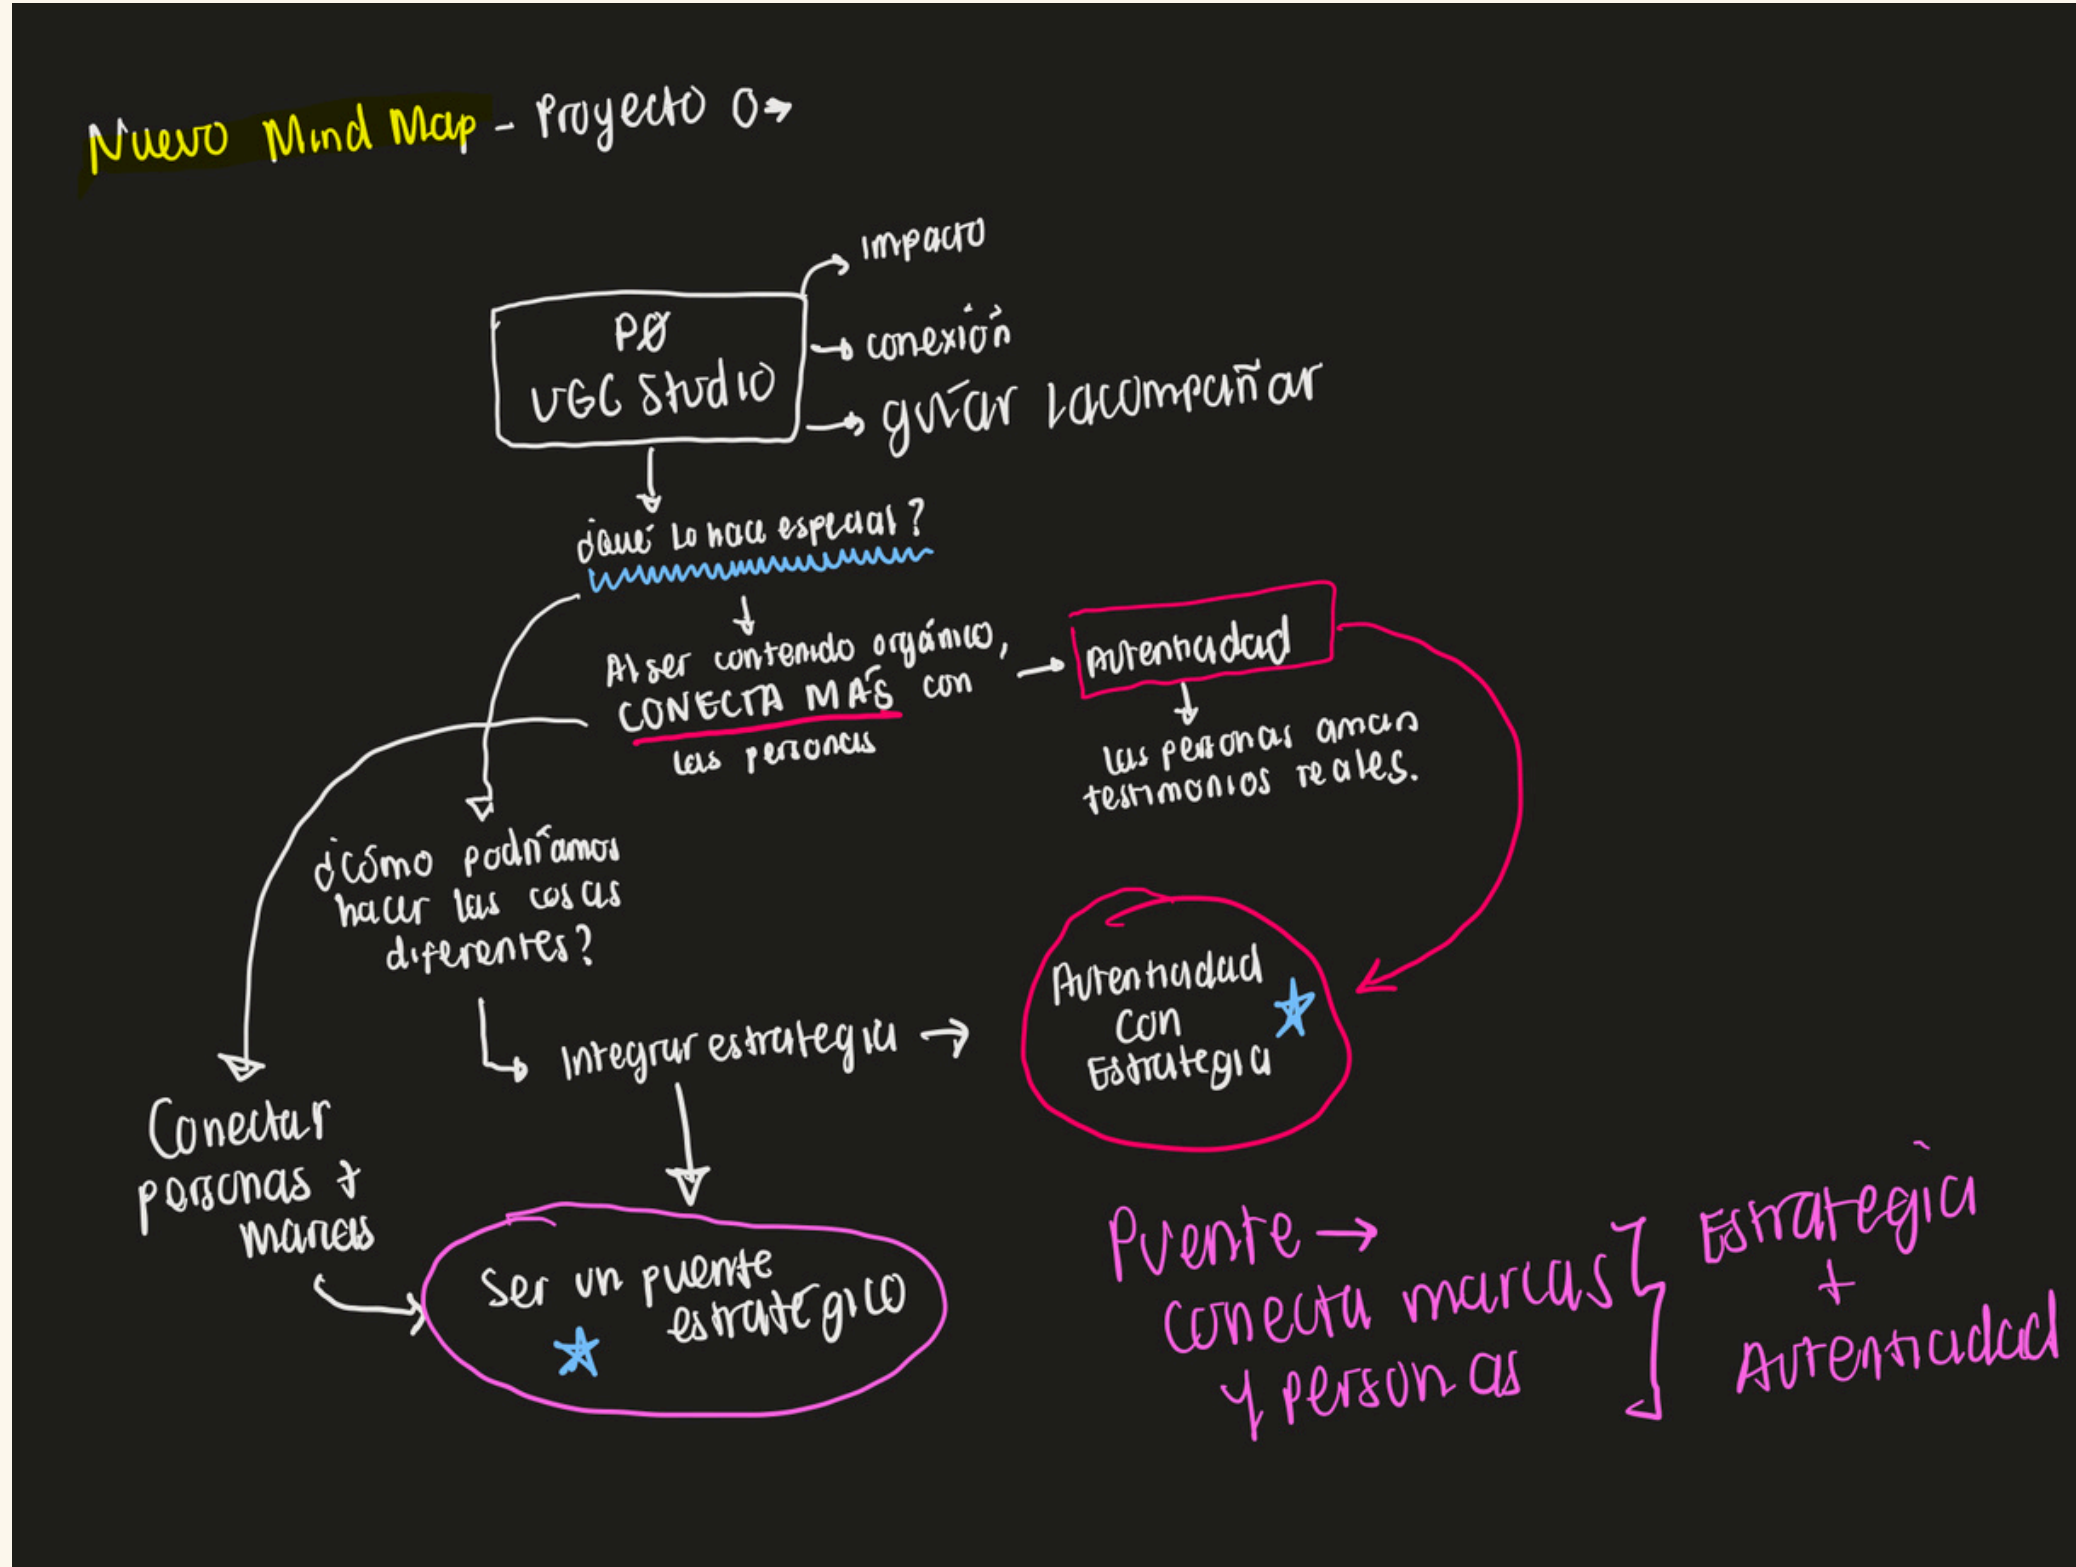 Nuevo Mind Map - Proyecto 0→
PØ
UGC Studio
→ impacto
→ conexión
→ guíar / acompañar
¿Qué lo hace especial?
Al ser contenido orgánico,
CONECTA MÁS con
las personas
→ Autenticidad
las personas aman
testimonios reales.
¿Cómo podríamos
hacer las cosas
diferentes?
Integrar estrategia →
Autenticidad
con
Estrategia
Conectar
personas +
marcas
Ser un puente
estratégico
Puente →
conecta marcas
y personas
Estrategia
+
Autenticidad